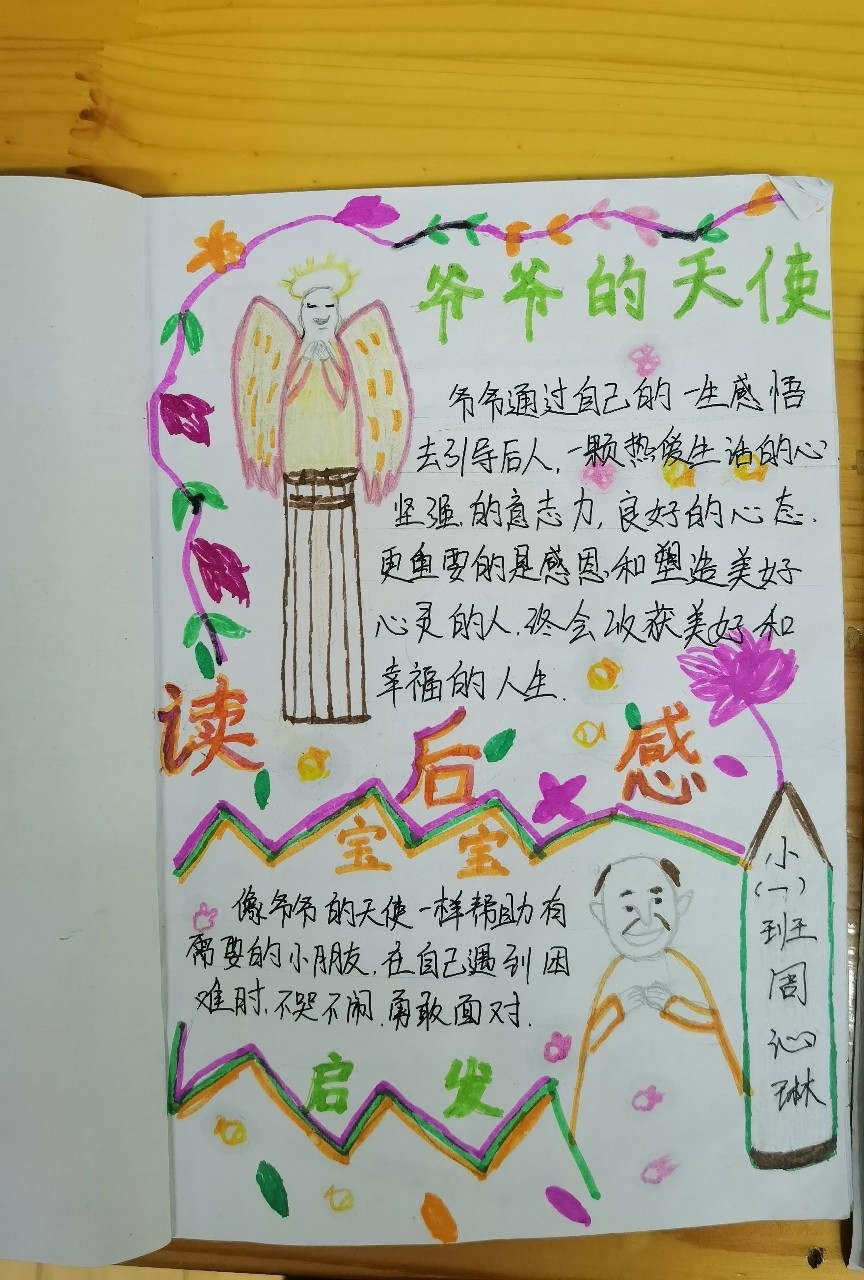 爷爷的天使
爷爷通过自己的一生感悟
去引导后人,一颗热爱生活的心
坚强的意志力,良好的心态.
更重要的是感恩和塑造美好
心灵的人.终会收获美好和
幸福的人生.
读后感
宝宝
像爷爷的天使一样帮助有
需要的小朋友.在自己遇到困
难时.不哭不闹.勇敢面对.
启发
小
(一)
班
周
沁
琳